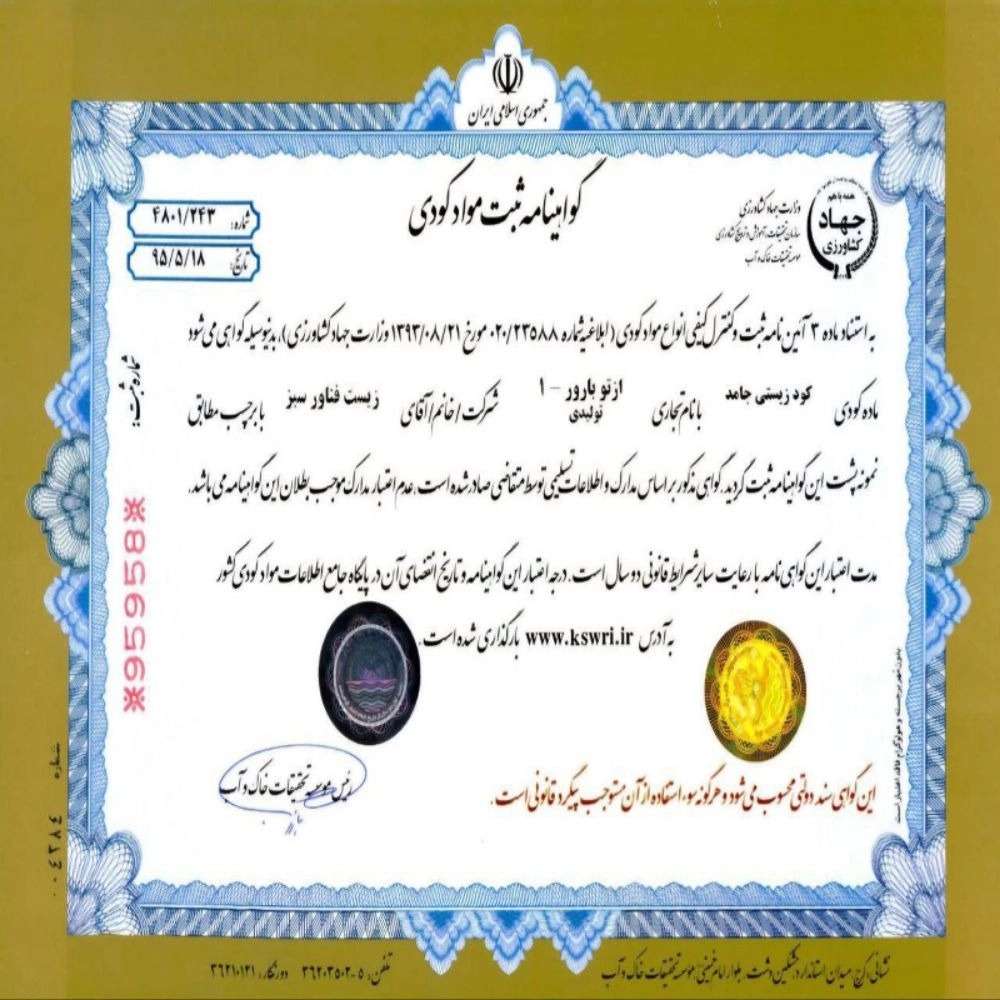 جمهوری اسلامی ایران
گواهینامه ثبت مواد کودی
همه با هم
جهاد
کشاورزی
وزارت جهاد کشاورزی
سازمان تحقیقات، آموزش و ترویج کشاورزی
موسسه تحقیقات خاک و آب
شماره: ۴۸۰۱/۲۴۳
تاریخ: ۹۵/۵/۱۸
به استناد ماده ۳ آئین نامه ثبت و کنترل کیفی انواع مواد کودی (ابلاغیه شماره ۰۲۰/۲۳۵۸۸ مورخ ۱۳۹۳/۰۸/۲۱ وزارت جهاد کشاورزی)، بدینوسیله گواهی می شود
ماده کودی کود زیستی جامد با نام تجاری ازتو بارور - ۱ تولیدی شرکت/خانم/آقای زیست فناور سبز با برچسب مطابق
نمونه پشت این گواهینامه ثبت گردید. گواهی مذکور بر اساس مدارک و اطلاعات تسلیمی توسط متقاضی صادر شده است. عدم اعتبار مدارک موجب بطلان این گواهینامه می باشد.
مدت اعتبار این گواهی نامه با رعایت سایر شرایط قانونی دو سال است. درجه اعتبار این گواهینامه و تاریخ انقضای آن در پایگاه جامع اطلاعات مواد کودی کشور
به آدرس www.kswri.ir بارگذاری شده است.
شماره ثبت:
※95958※
رئیس موسسه تحقیقات خاک و آب
این گواهی سند دولتی محسوب می شود و هرگونه سوء استفاده از آن مستوجب پیگرد قانونی است.
بدون مهر برجسته و هولوگرام فاقد اعتبار است
شماره ۰۰۴۳۸۴
نشانی: کرج، میدان استاندارد، مشکین دشت، بلوار امام خمینی، موسسه تحقیقات خاک و آب
تلفن: ۵-۳۶۲۰۳۵۰۲ دورنگار: ۳۶۲۱۰۱۲۱